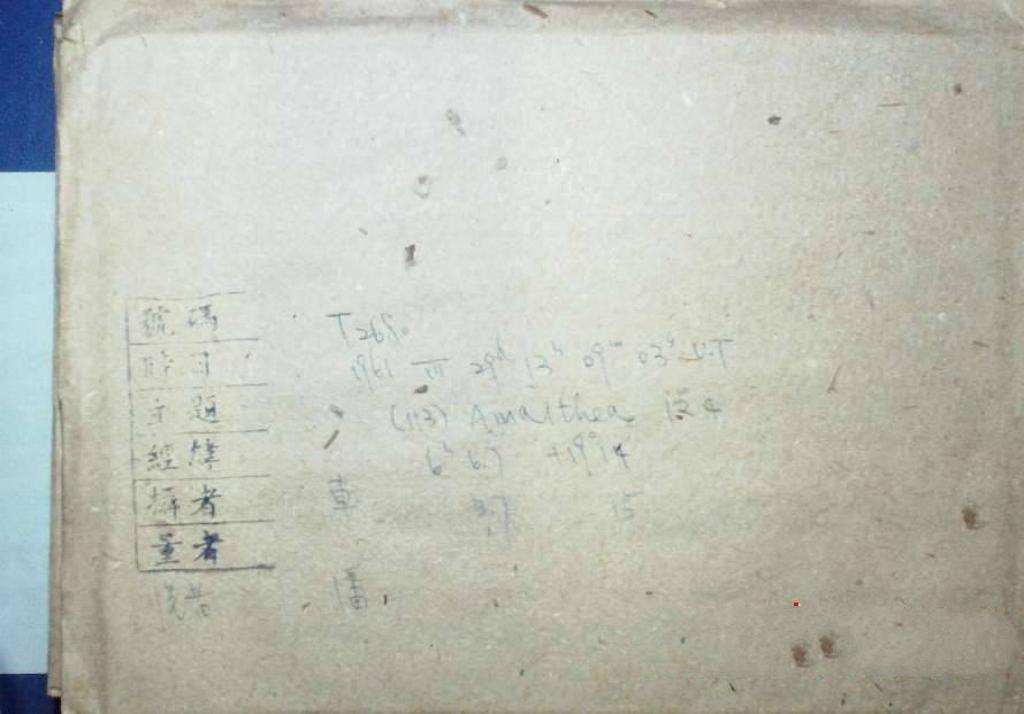 號碼 T268。
時日 1961 III 29ᵈ 13ʰ 09ᵐ 03ˢ U.T
主題 (113) Amalthea 4
經緯 6ʰ 6.7 +19°14
攝者 章 3.7 15
量者
潘